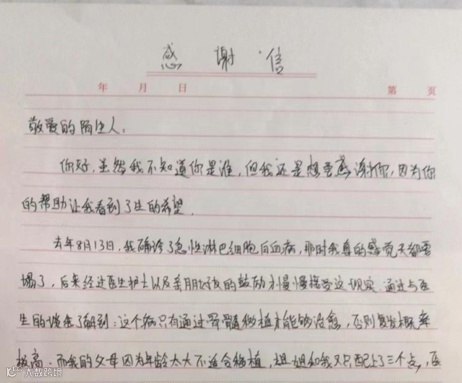 感谢信
年 月 日 第 页
敬爱的陌生人,
你好,虽然我不知道你是谁,但我还是想要感谢你,因为你
的帮助让我看到了生的希望.
去年8月13日,我确诊了急性淋巴细胞白血病,那时我真的感觉天都要
塌了,后来经过医生护士以及亲朋好友的鼓励才慢慢接受这个现实.通过与医
生的谈话了解到:这个病只有通过骨髓移植才能够治愈,否则复发概率
极高.而我的父母因为年龄太大不适合移植,姐姐和我又只配上了三个点,医
一大截跨境